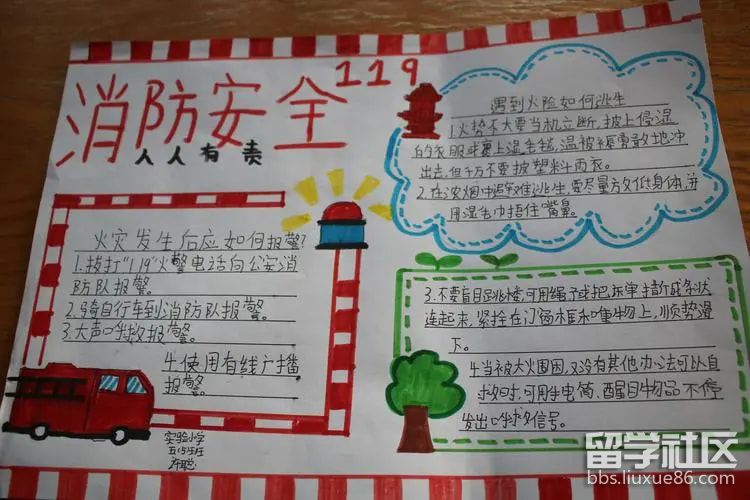 消防安全119
人人有责
火灾发生后应如何报警?
1.拔打"119"火警电话向公安消
防队报警。
2.骑自行车到消防队报警。
3.大声呼救报警。
4.使用有线广播
报警。
实验小学
五(5)班
遇到火险如何逃生
1.火势不大要当机立断,披上侵湿
的衣服或裹上湿毛毯、湿被褥勇敢地冲
出去,但千万不要披塑料雨衣。
2.在浓烟中避难逃生,要尽量放低身体,并
用湿毛巾捂住嘴鼻。
3.不要盲目跳楼,可用绳子或把床单撕成条状
连起来,紧拴在门窗框和重物上,顺势滑
下。
4.当被大火围困,又没有其他办法可以自
救时,可用手电筒、醒目物品不停
发出呼救信号。
留学社区
bbs.liuxue86.com